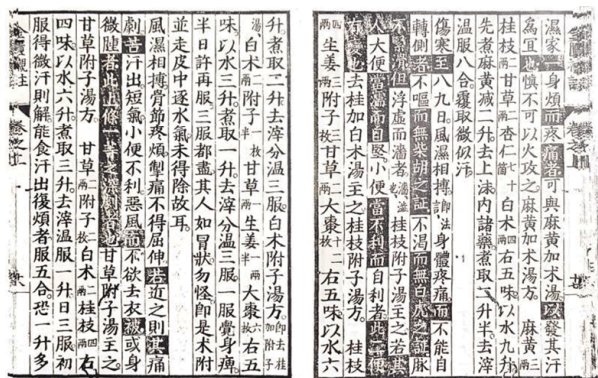 濕家一身煩而疼痛者可與麻黃加术湯以發其汗
爲宜也慎不可以火攻之麻黃加术湯方麻黃三兩
桂枝二兩甘草二兩杏仁七十箇白术四兩右五味以水九升
先煮麻黃減二升去上沫内諸藥煮取二升半去滓
温服八合覆取微似汗
傷寒至八九日風濕相搏身體疼痛而不能自
轉側者不嘔而無柴胡之証不渴而無白虎之証脉
滑但浮虛而濇者桂枝附子湯主之若其
人大便當濡而自堅小便當不利而自利者此
去桂加白术湯主之桂枝附子湯方桂枝
四兩生姜三兩附子三枚甘草二兩大棗十二枚右五味以水六
升煮取二升去滓分温三服白术附子湯方即去桂加附子
湯白术二兩附子一枚半甘草一兩生姜一兩半大棗六枚右五
味以水三升煮取一升去滓分温三服一服覺身痺
半日許再服三服都盡其人如冒狀勿怪即是术附
並走皮中逐水氣未得除故耳
風濕相搏骨節疼煩掣痛不得屈伸近之則其痛
劇苦汗出短氣小便不利惡風而不欲去衣被或身
微腫者此甘草附子湯主之
甘草附子湯方甘草二兩附子二枚白术二兩桂枝四兩右
四味以水六升煮取三升去滓温服一升日三服初
服得微汗則解能食汗出復煩者服五合恐一升多